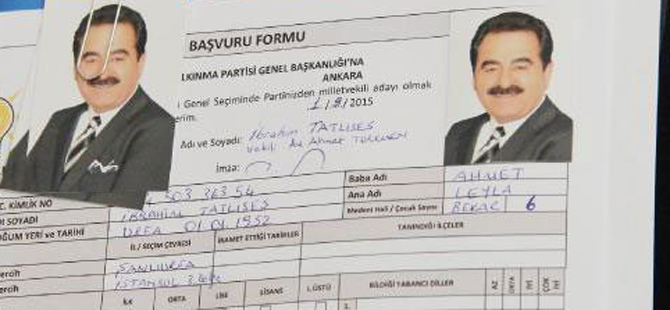 BAŞVURU FORMU
LKINMA PARTİSİ GENEL BAŞKANLIĞI'NA
ANKARA
Genel Seçiminde Partinizden milletvekili adayı olmak
erim.
2015
Adı ve Soyadı: İbrahim TATLISES
vekili Av Ahmet
İmza:
C. KİMLİK NO 503 363 54
DI SOYADI İBRAHİM TATLISES
OĞUM YERİ ve TARİHİ URFA 01.01.1952
Baba Adı AHMET
Ana Adı LEYLA
Medeni Hali / Çocuk Sayısı BEKAR 6
İL / SEÇİM ÇEVRESİ İKAMET ETTİĞİ TARİHLER TANINDIĞI İLÇELER
ercih ŞANLIURFA
ercih İSTANBUL
İLK ORTA LİSE LİSANS L.ÜSTÜ BİLDİĞİ YABANCI DİLLER AZ ORTA İYİ ÇOK İYİ
1.